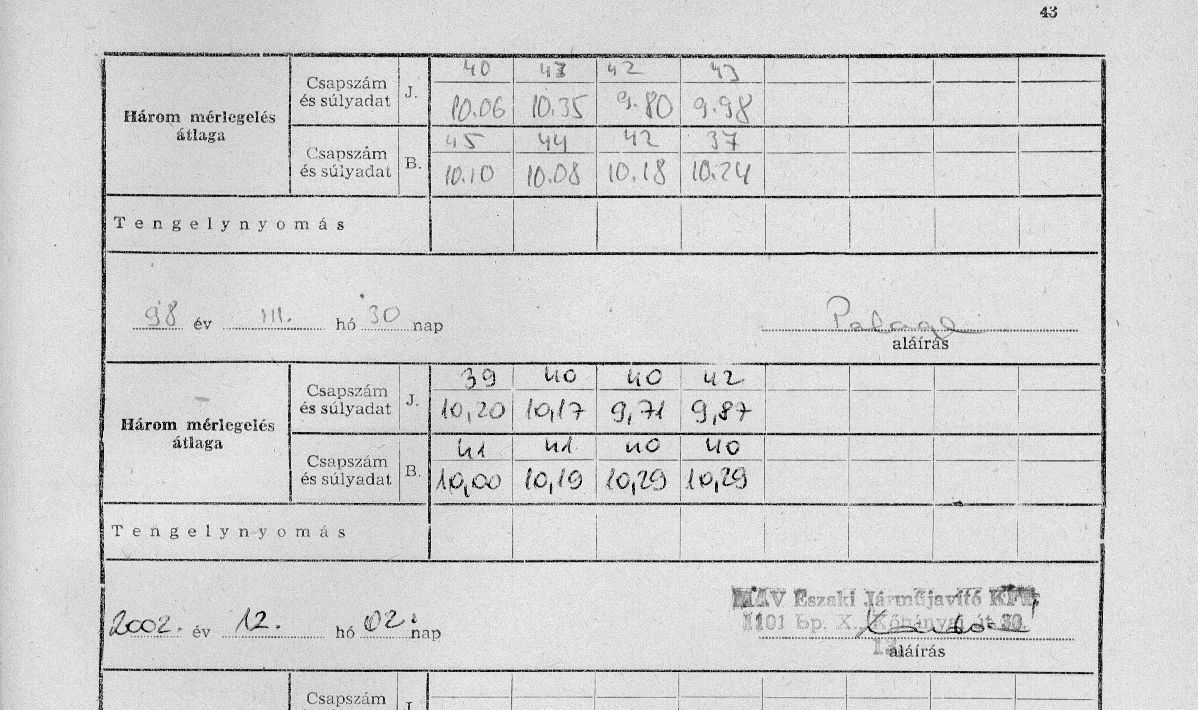 43
40 43 42 43
Csapszám és súlyadat J.
10.06 10.35 9.80 9.98
Három mérlegelés átlaga
45 44 42 37
Csapszám és súlyadat B.
10.10 10.08 10.18 10.24
Tengelynyomás
98 év III. hó 30 nap
aláírás
39 40 40 42
Csapszám és súlyadat J.
10,20 10,17 9,71 9,87
Három mérlegelés átlaga
41 41 40 40
Csapszám és súlyadat B.
10,00 10,19 10,29 10,29
Tengelynyomás
MÁV Északi Járműjavító Kft.
2002. év 12. hó 02. nap
1101 Bp. X., Kőbányai út 30.
aláírás
Csapszám J.